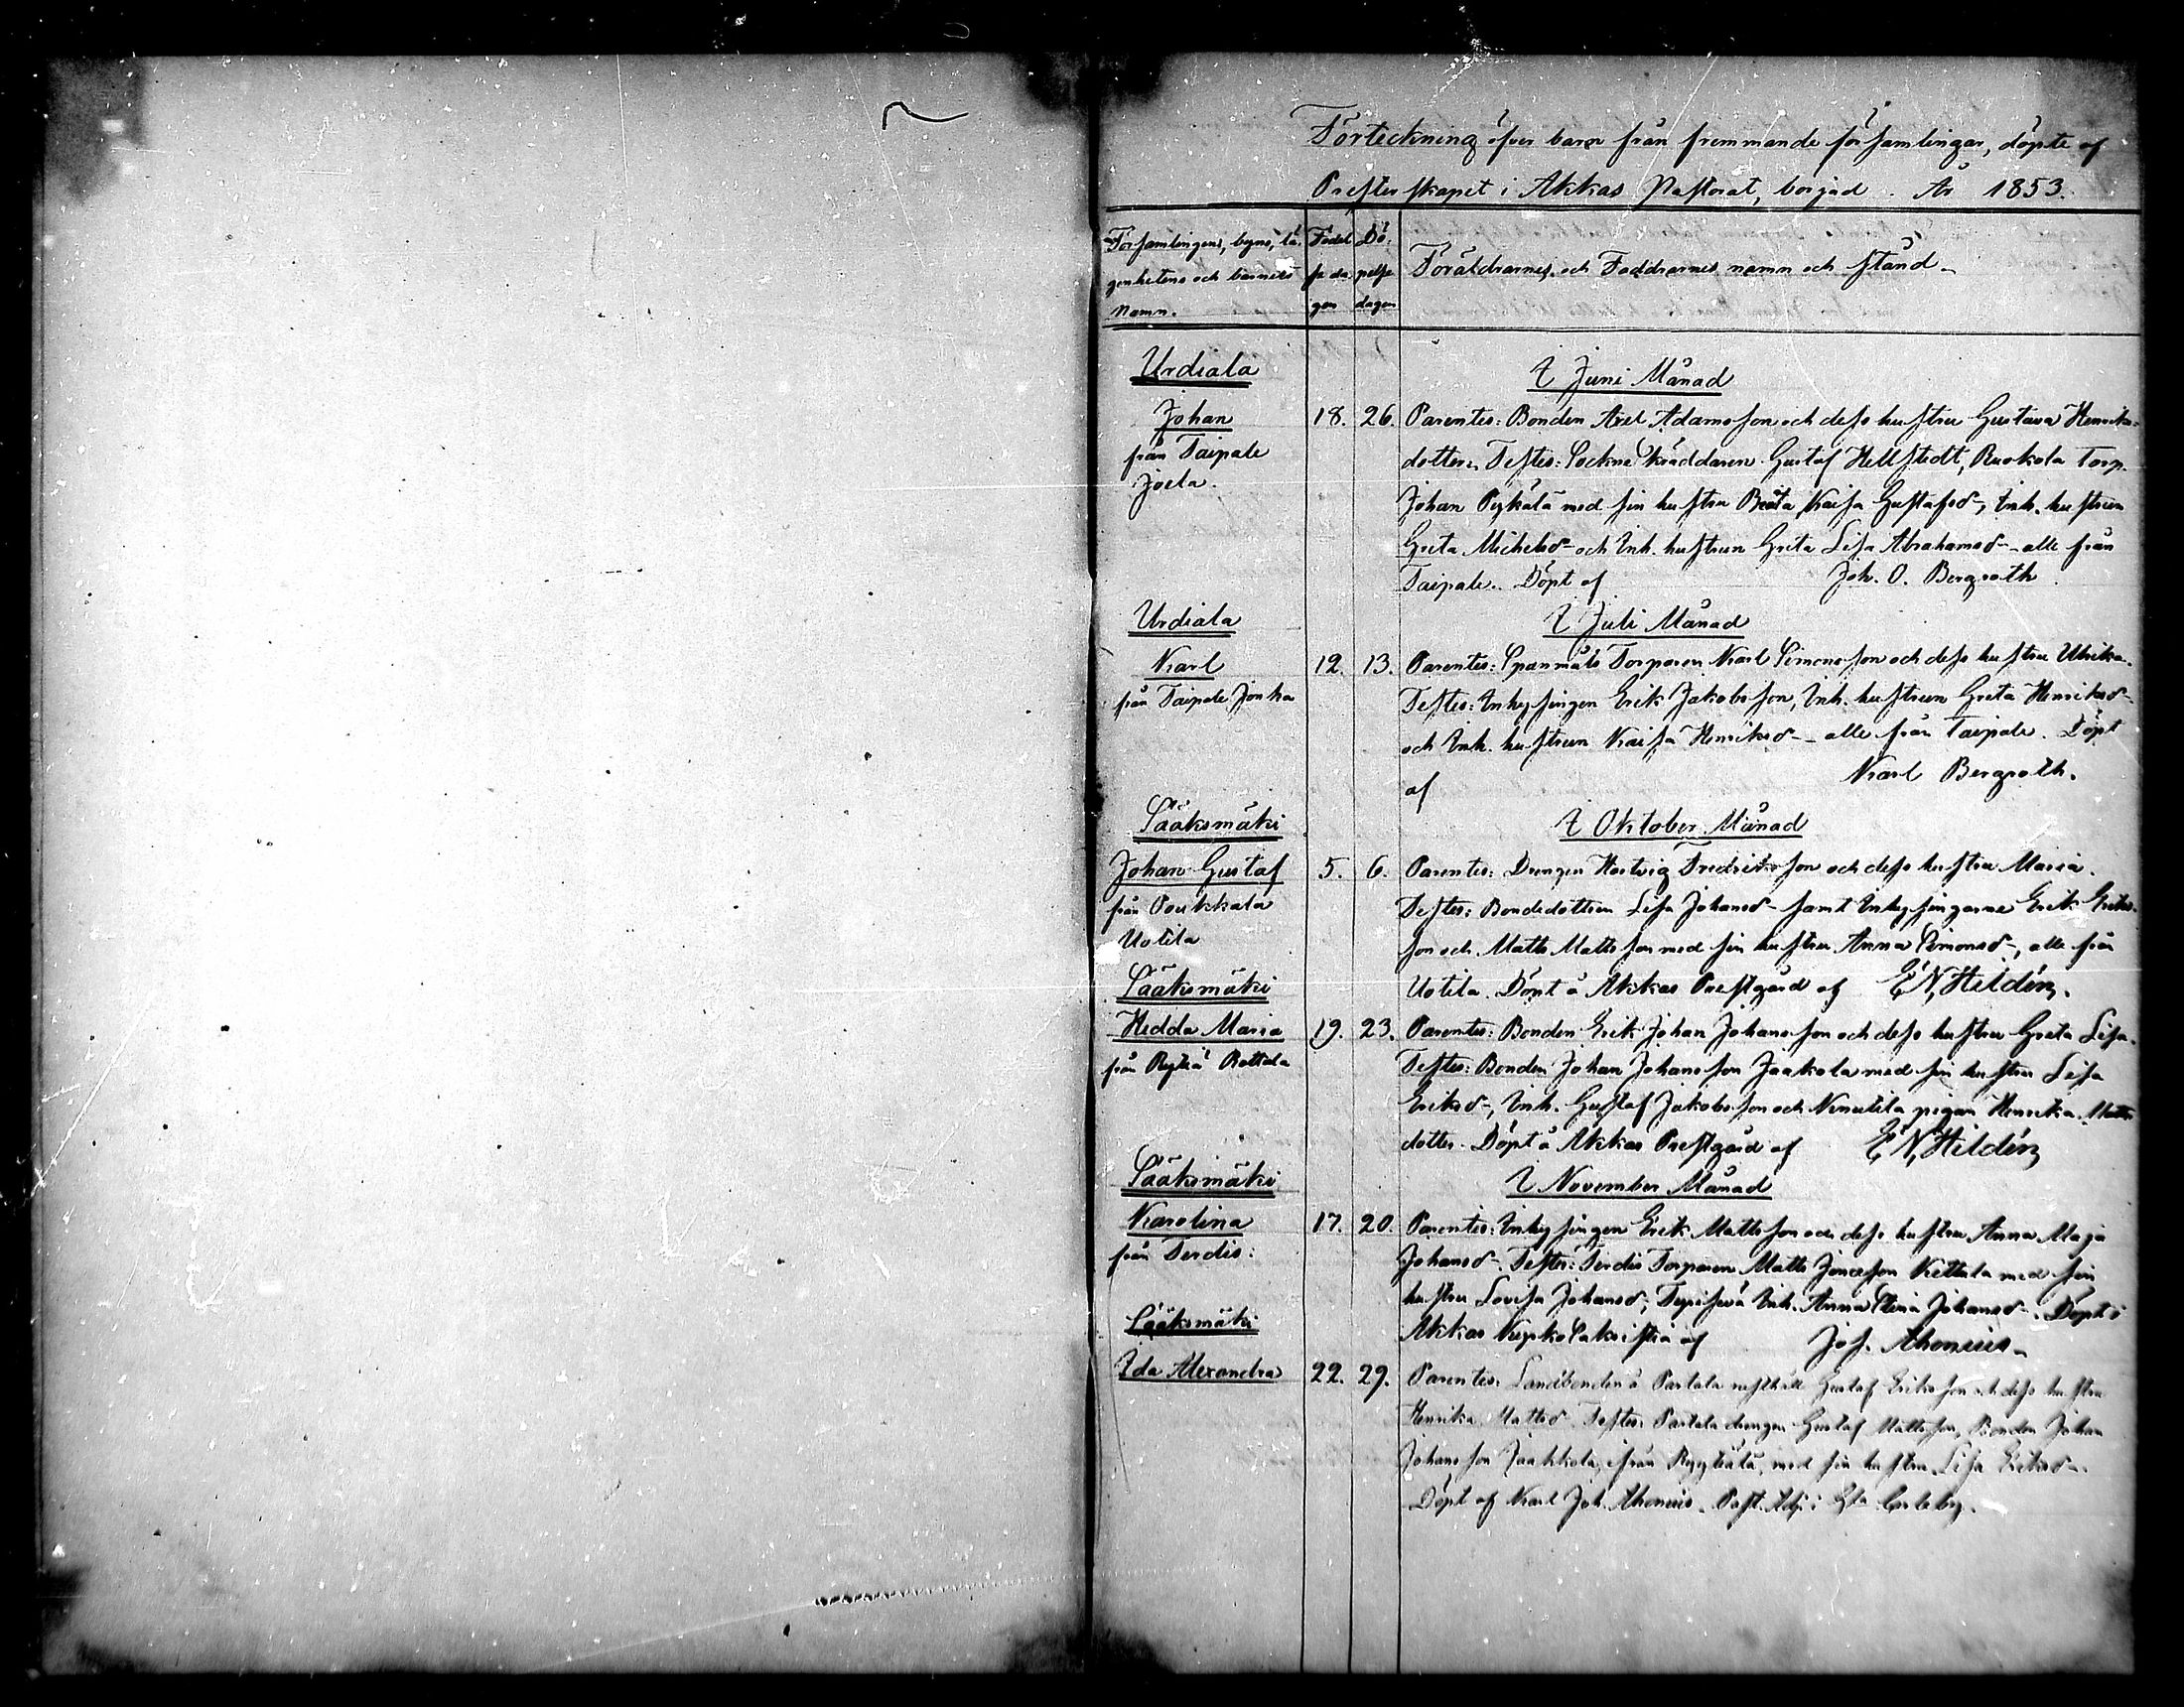 Förteckning öfver barn från fremmande församlingar, döpte af
Presterskapet i Akkas Pastorat, börjad År 1853.
Församlingens, byns, lä-
genhetens och barnets
Namn.
Födel
se da
gen
Dö-
pelse
dagen
Föräldrarnes och Faddrarnes namn och stånd
Urdiala
I Juni Månad
Johan
från Taipale
Joela.
18. 26. Parentes: Bonden Axel Adamsson och dess hustru Gustava Henriks-
dotter. Testes: Sockne Skräddaren Gustaf Hellstedt, Ruokola Torp.
Johan Pykälä med sin hustru Beata Kaisa Gustafsd-, Inh. hustrun
Greta Michelsd- och Inh. hustrun Greta Lisa Abrahamsd- alle från
Taipale. Döpt af Joh. O. Bergroth
Urdiala
I Juli Månad
Karl
från Taipale
12. 13. Parentes: Spanmåls Torparen Karl Simonsson och dess hustru Ulrika.
Testes: Inhysingen Erik Jakobsson, Inh. hustrun Greta Henriksd-
och Inh. hustrun Kaisa Henriksd- alle från Taipale. Döpt
af Karl Bergroth.
Sääksmäki
I Oktober Månad
Johan Gustaf
från
Uotila
5. 6. Parentes: Drengen Hartvig Fredriksson och dess hustru Maria.
Testes: Bondedottren Lisa Johansd- samt Inhysingarne Erik Eriks-
son och Matts Mattsson med sin hustru Anna Simonsd-, alle från
Uotila. Döpt å Akkas Prestgård af E N Hildén.
Sääksmäki
Hedda Maria
från
19. 23. Parentes: Bonden Erik Johan Johansson och dess hustru Greta Lisa.
Testes: Bonden Johan Johansson Jaakola med sin hustru Lisa
Eriksd-, Inh. Gustaf Jakobsson och pigan Henrika Matts
dotter. Döpt å Akkas Prestgård af E N Hildén
Sääksmäki
I November Månad
Karolina
från Terdis:
17. 20. Parentes: Inhysingen Erik Mattsson och dess hustru Anna Maja
Johansd-. Testes: Terdis Torparen Matts med sin
hustru Lovisa Johansd-, Inh. Anna Stina Johansd-. Döpt i
Akkas Kyrko Sakristia af Jos. Ahonius
Sääksmäki
Ida Alexandra
22. 29. Parentes: Landbonden å Partala rusthåll Gustaf Eriksson och dess hustru
Henrika Mattsd- Testes: Partala drengen Gustaf Mattsson, Bonden Johan
Johansson Jaakkola, ifrån med sin hustru Lisa Eriksd-.
Döpt af Karl Joh. Ahonius. Past. Adj. i